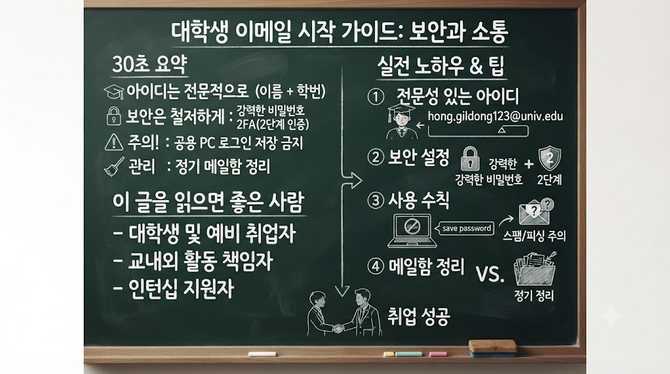 대학생 이메일 시작 가이드: 보안과 소통
30초 요약
아이디는 전문적으로 (이름 + 학번)
보안은 철저하게 : 강력한 비밀번호
2FA(2단계 인증)
주의! : 공용 PC 로그인 저장 금지
관리 : 정기 메일함 정리
이 글을 읽으면 좋은 사람
- 대학생 및 예비 취업자
- 교내외 활동 책임자
- 인턴십 지원자
실전 노하우 & 팁
① 전문성 있는 아이디
hong.gildong123@univ.edu
② 보안 설정
강력한 비밀번호
강력한
+
2
2단계
③ 사용 수칙
save password
? ?
스팸/피싱 주의
④ 메일함 정리
VS.
정기 정리
취업 성공